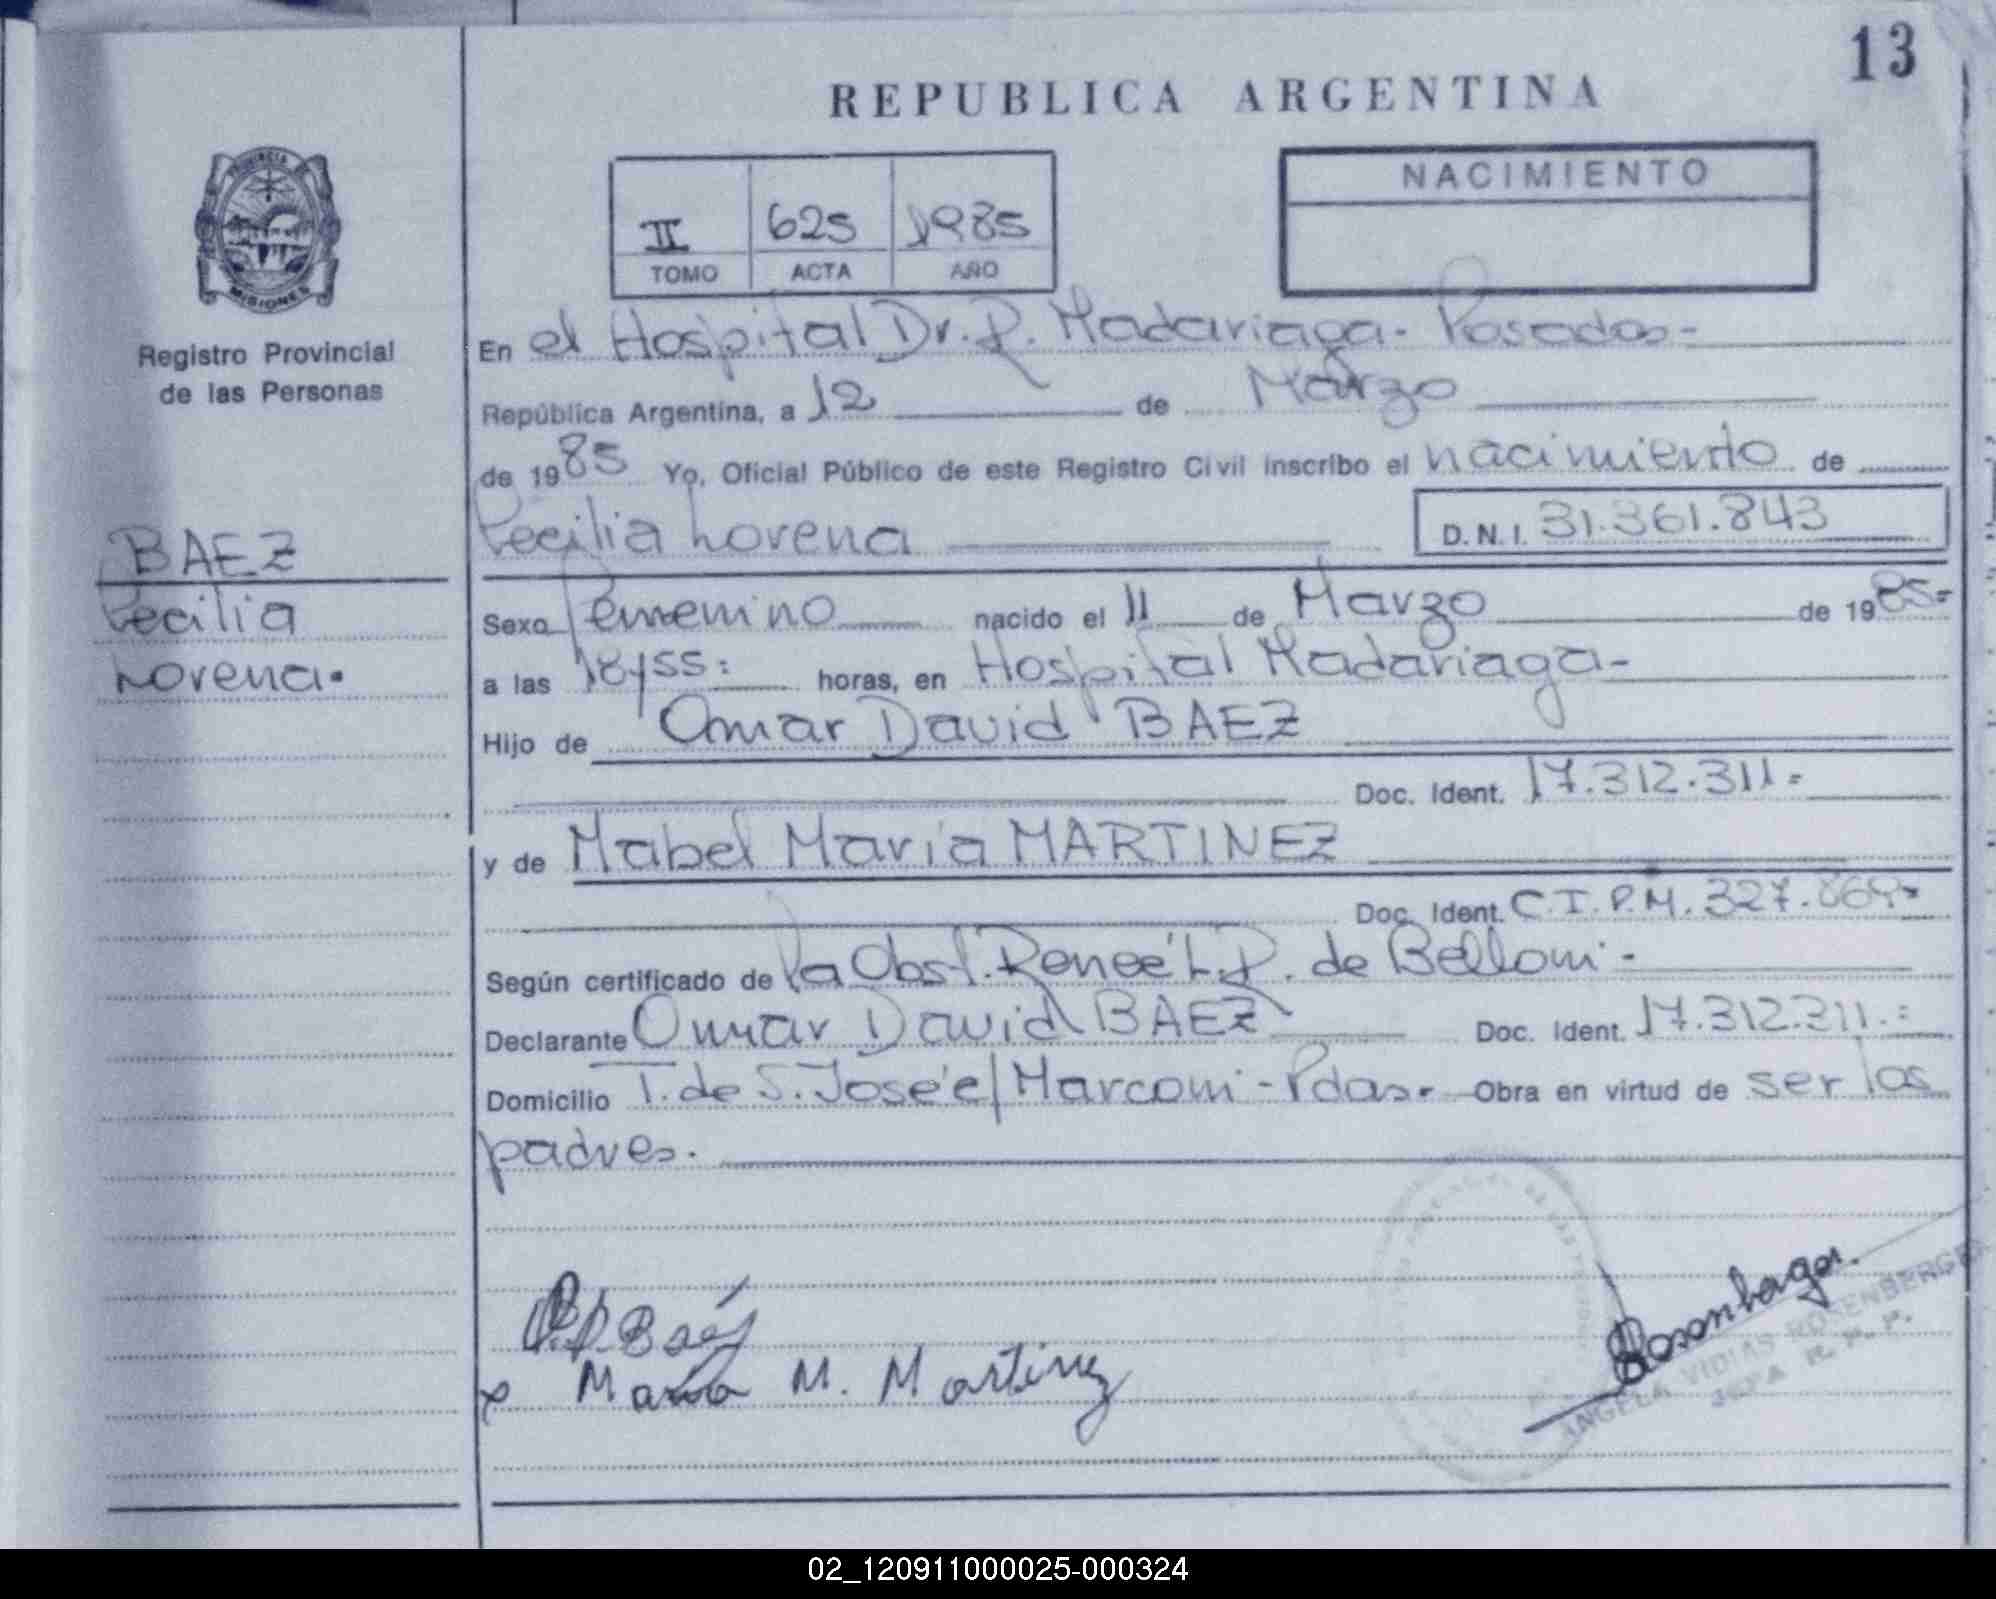 13
REPUBLICA ARGENTINA
NACIMIENTO
II 625 1985
TOMO ACTA AÑO
PROVINCIA
MISIONES
Registro Provincial
de las Personas
BAEZ
Cecilia
Lorena.
En el Hospital Dr. R. Madariaga- Posadas-
República Argentina, a 12 de Marzo
de 1985 Yo, Oficial Público de este Registro Civil inscribo el nacimiento de
Cecilia Lorena D.N.I. 31.361.843
Sexo femenino nacido el 11 de Marzo de 1985=
a las 18y55: horas, en Hospital Madariaga-
Hijo de Omar David BAEZ
Doc. Ident. 17.312.311=
y de Mabel María MARTINEZ
Doc. Ident. C.I.P.M. 327.869-
Según certificado de la Obst. Reneé L.R. de Belloni-
Declarante Omar David BAEZ Doc. Ident. 17.312.311.=
Domicilio T. de S. José e/ Marconi - Pdas.- Obra en virtud de ser los
padres.
Baéz
x María M. Martinez
Rosenberger
ANGELA VIDIAS ROSENBERGER
JEFA R. P. P.
02_120911000025-000324